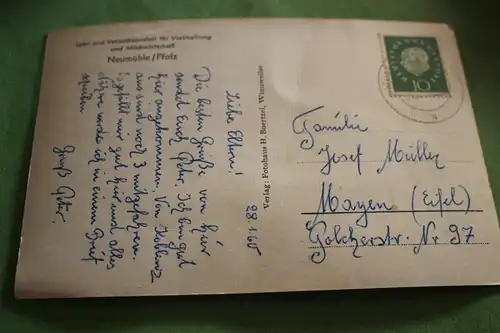 Lehr- und Versuchsanstalt für Viehhaltung
und Milchwirtschaft
Neumühle/Pfalz
28.1.60
Liebe Eltern!
Die besten Grüße von hier
sendet Euch Peter. Ich bin gut
hier angekommen. Von Koblenz
aus sind noch 3 mitgefahren.
Es gefällt mir gut hier und alles
werde ich in einem Brief
Gruß Peter.
Verlag: Fotohaus H. Baertzel, Winnweiler
10
Familie
Josef Müller
Mayen (Eifel)
Polcherstr. Nr 97